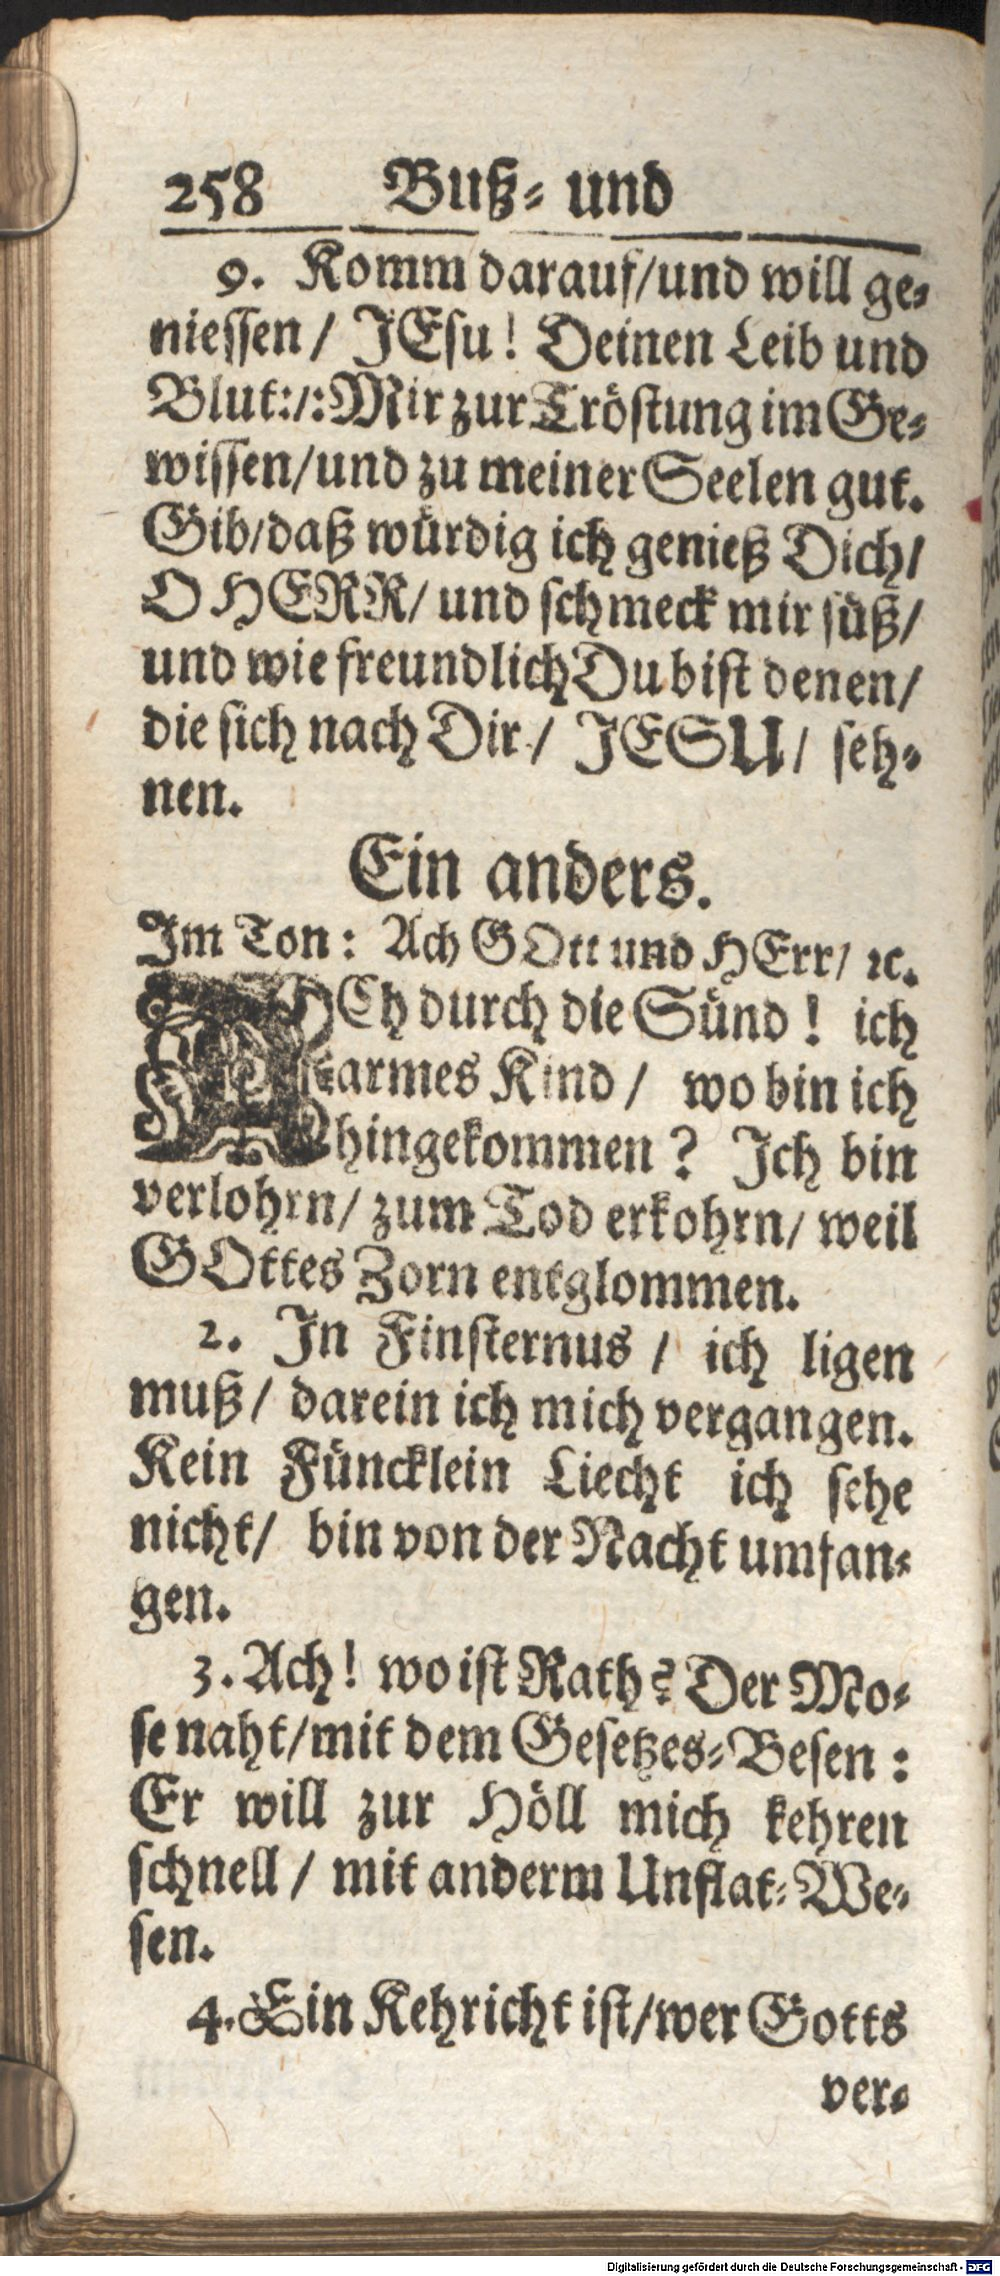 258 Buß- und
9. Komm darauf/und will ge-
niessen/ JEsu! Deinen Leib und
Blut:/:Mir zur Tröstung im Ge-
wissen/und zu meiner Seelen gut.
Gib/daß würdig ich genieß Dich/
O HERR/ und schmeck mir süß/
und wie freundlich Du bist denen/
die sich nach Dir/ JESU/ seh-
nen.
Ein anders.
Im Ton: Ach GOtt und HErr/ ꝛc.
ACh durch die Sünd! ich
armes Kind/ wo bin ich
hingekommen? Ich bin
verlohrn/ zum Tod erkohrn/ weil
GOttes Zorn entglommen.
2. In Finsternus/ ich ligen
muß/ darein ich mich vergangen.
Kein Füncklein Liecht ich sehe
nicht/ bin von der Nacht umfan-
gen.
3. Ach! wo ist Rath? Der Mo-
se naht/mit dem Gesetzes-Besen:
Er will zur Höll mich kehren
schnell/ mit anderm Unflat-We-
sen.
4. Ein Kehricht ist/wer Gotts
ver-
Digitalisierung gefördert durch die Deutsche Forschungsgemeinschaft - DFG